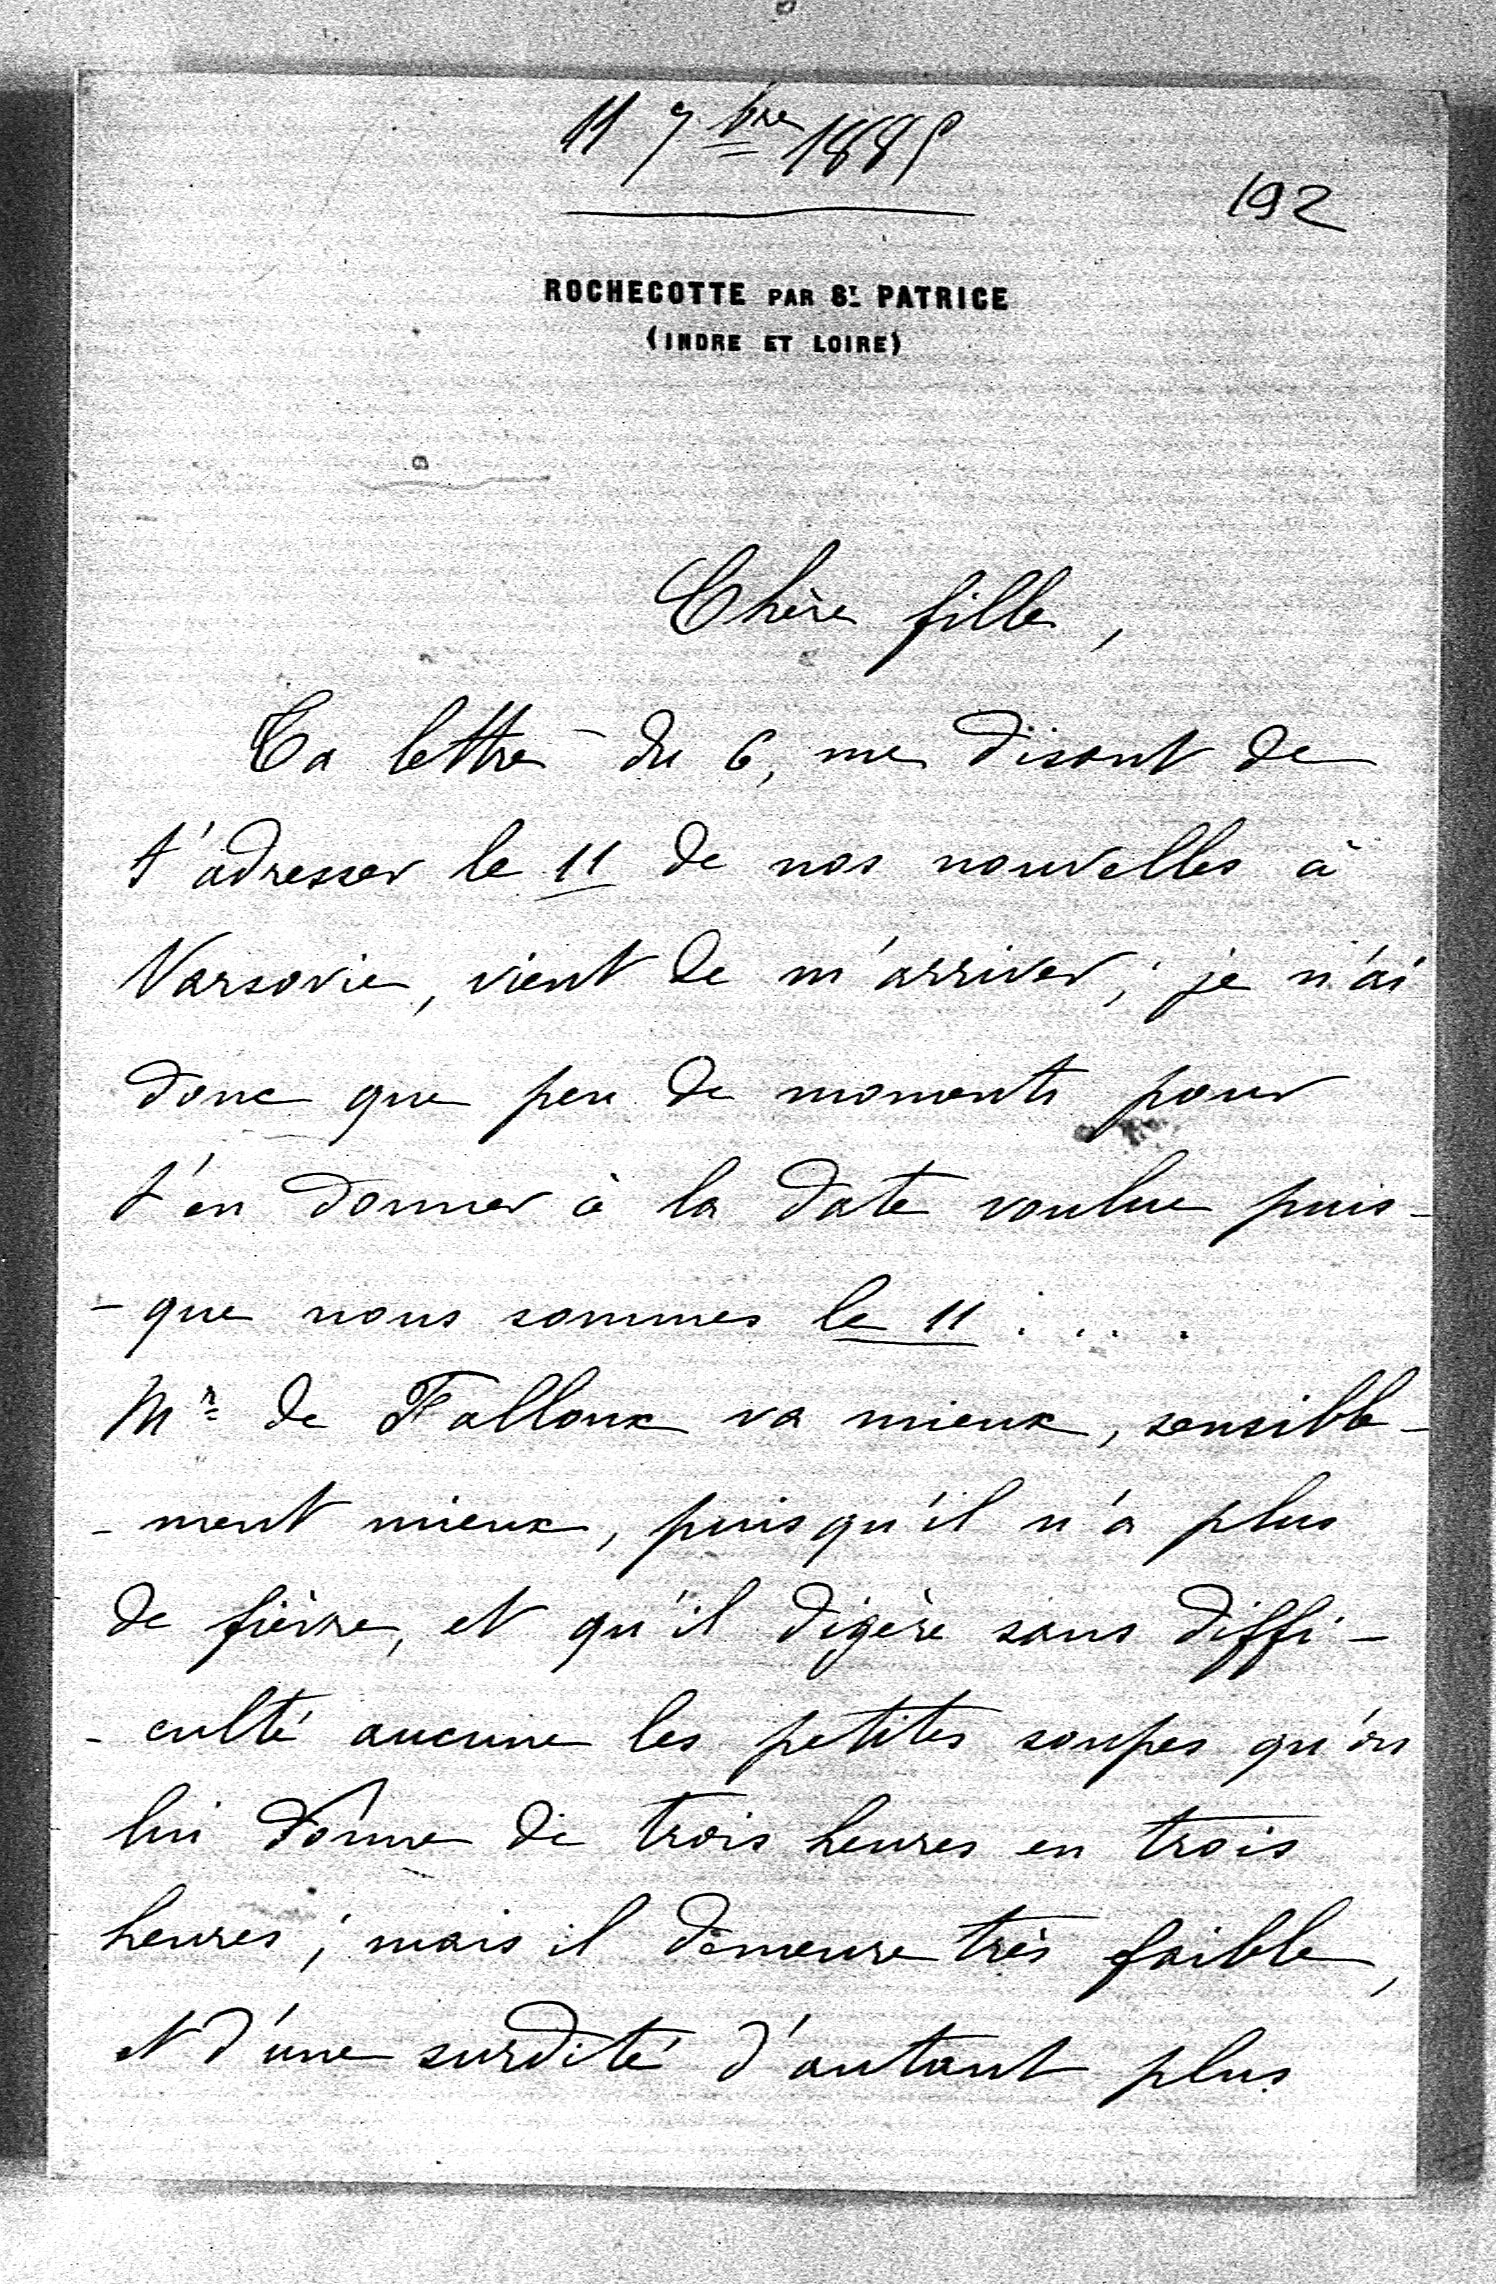 11 7bre 1885
192
ROCHECOTTE PAR ST PATRICE
(INDRE ET LOIRE)
Chère fille,
Ta lettre du 6, me disant de
t'adresser le 11 de nos nouvelles à
Varsovie, vient de m'arriver; je n'ai
donc que peu de moments pour
t'en donner à la date voulue puis-
-que nous sommes le 11 . . . .
Mr de Falloux va mieux, sensible-
-ment mieux, puisqu'il n'a plus
de fièvre, et qu'il digère sans diffi-
-culté aucune les petites soupes qu'on
lui donne de trois heures en trois
heures; mais il demeure très faible,
et d'une surdité d'autant plus